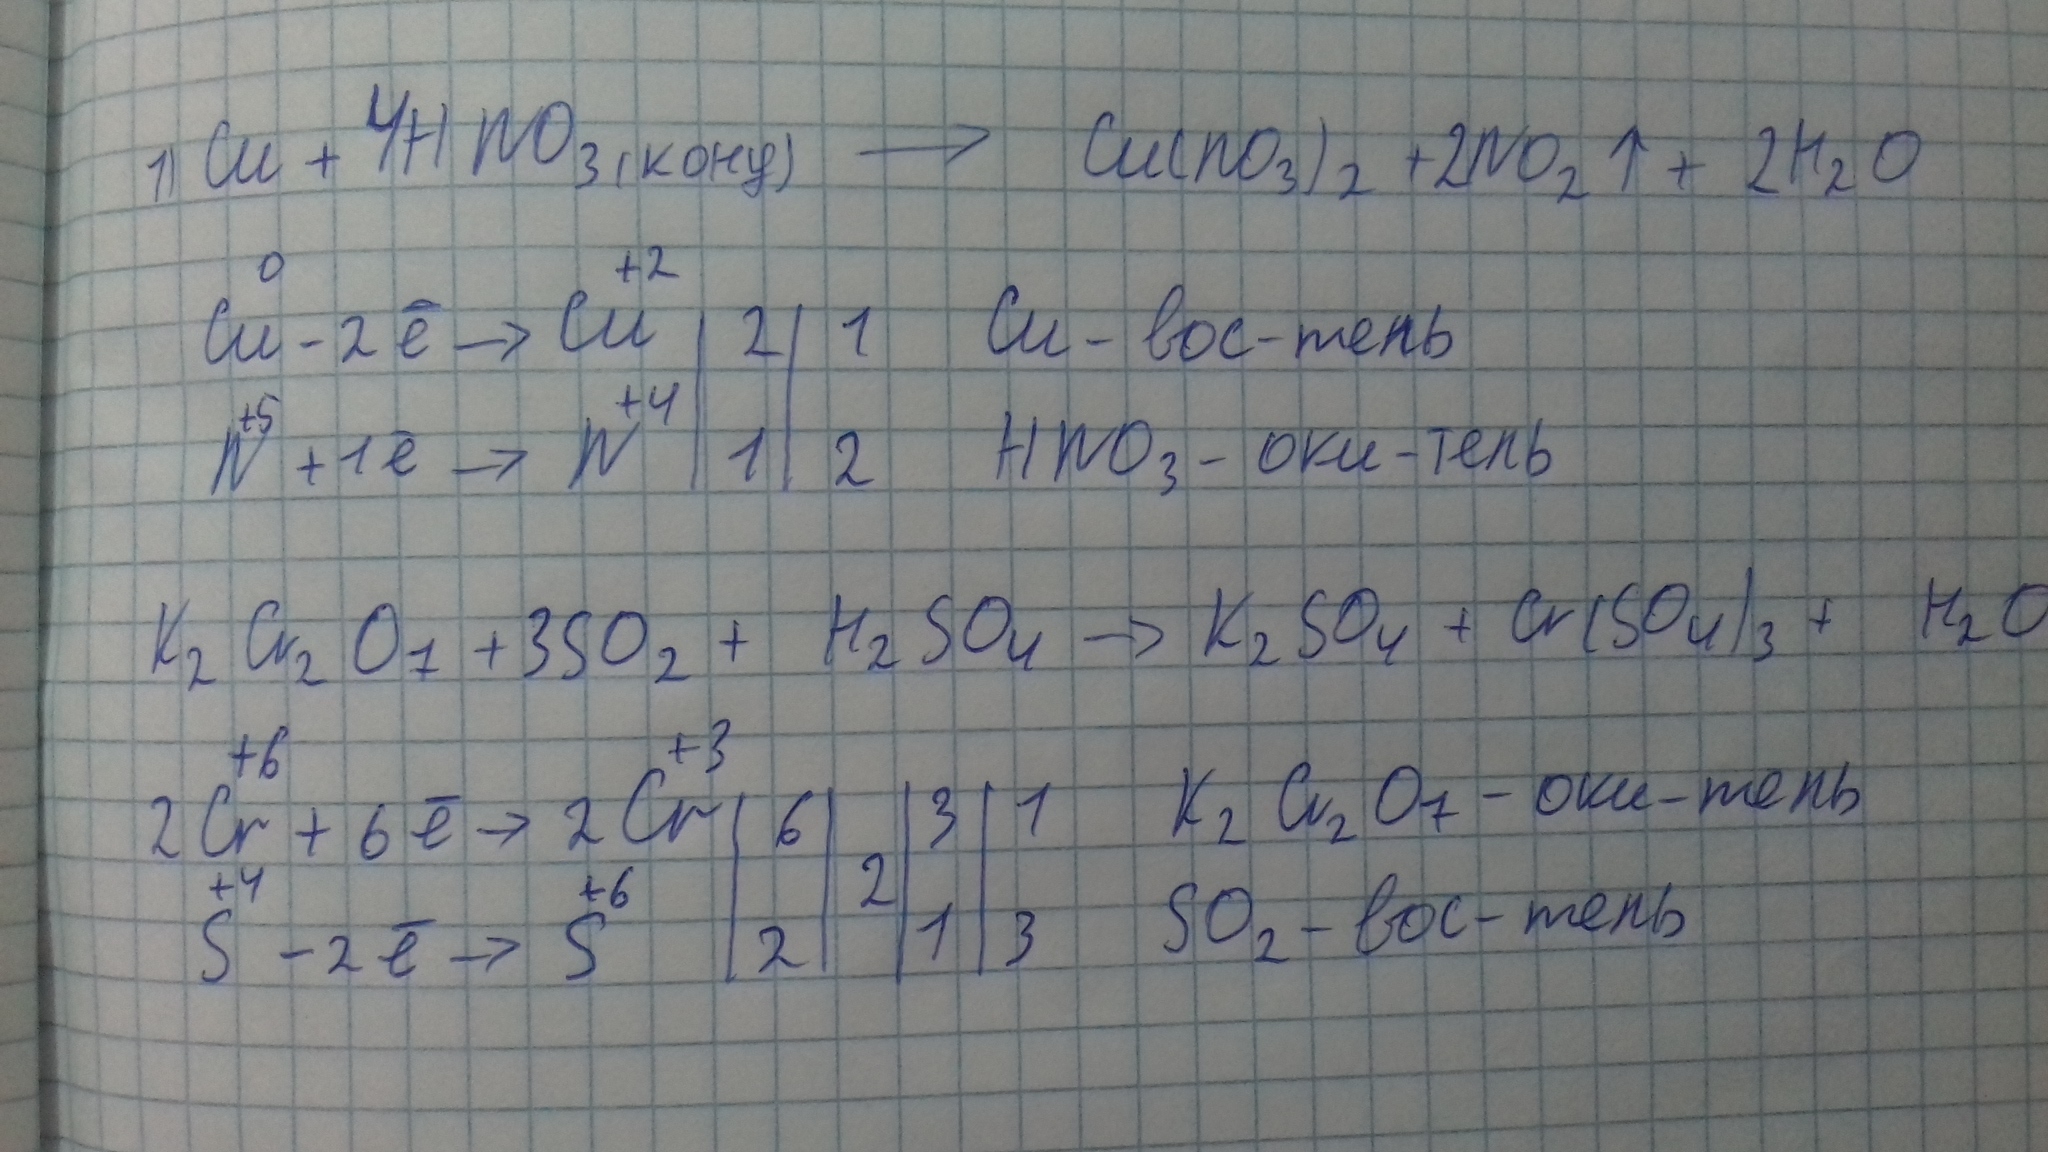 1) Cu + 4HNO₃(конц) → Cu(NO₃)₂ + 2NO₂↑ + 2H₂O
Cu⁰ - 2ē → Cu⁺² | 2 | 1 Cu - вос-тель
N⁺⁵ + 1ē → N⁺⁴ | 1 | 2 HNO₃ - оки-тель
K₂Cr₂O₇ + 3SO₂ + H₂SO₄ → K₂SO₄ + Cr(SO₄)₃ + H₂O
2Cr⁺⁶ + 6ē → 2Cr⁺³ | 6 | 2 | 3 | 1 K₂Cr₂O₇ - оки-тель
S⁺⁴ - 2ē → S⁺⁶ | 2 | | 1 | 3 SO₂ - вос-тель